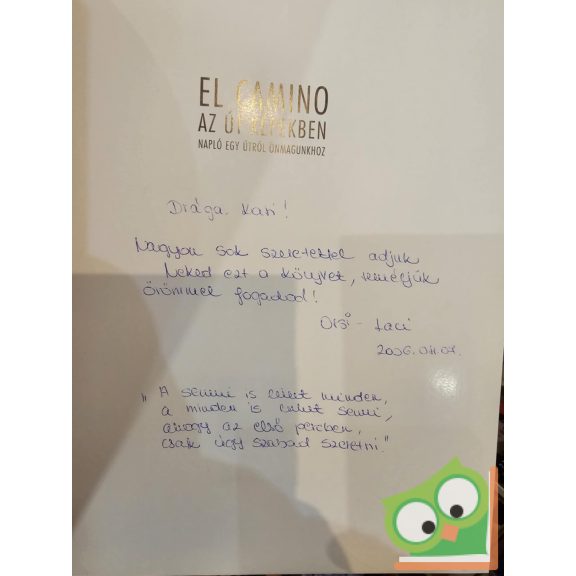 EL CAMINO
AZ ÚT KÉPEKBEN
NAPLÓ EGY ÚTRÓL ÖNMAGUNKHOZ
Drága Kati!
Nagyon sok szeretettel adjuk
Neked ezt a könyvet, reméljük
örömmel fogadod!
Orsi - Laci
"A semmi is lehet minden,
a minden is lehet semmi,
ahogy az első percben,
csak úgy szabad szeretni."